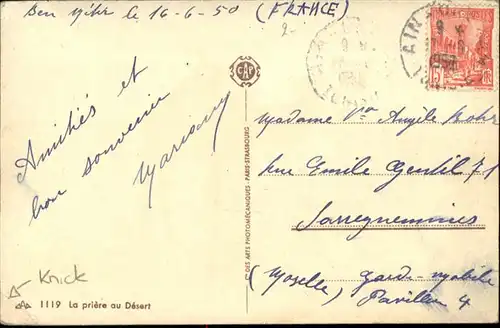 Ben Métir le 16-6-50 (FRANCE)
2-
AIN
9
1950
15
Amitiés et
bon souvenir
Mariany
CAP
DES ARTS PHOTOMÉCANIQUES - PARIS-STRASBOURG
Madame Vve Angèle Bohr
rue Emile Gentil 71
Sarreguemines
(Moselle) garde-mobile
Pavillon 4
Knick
1119 La prière au Désert